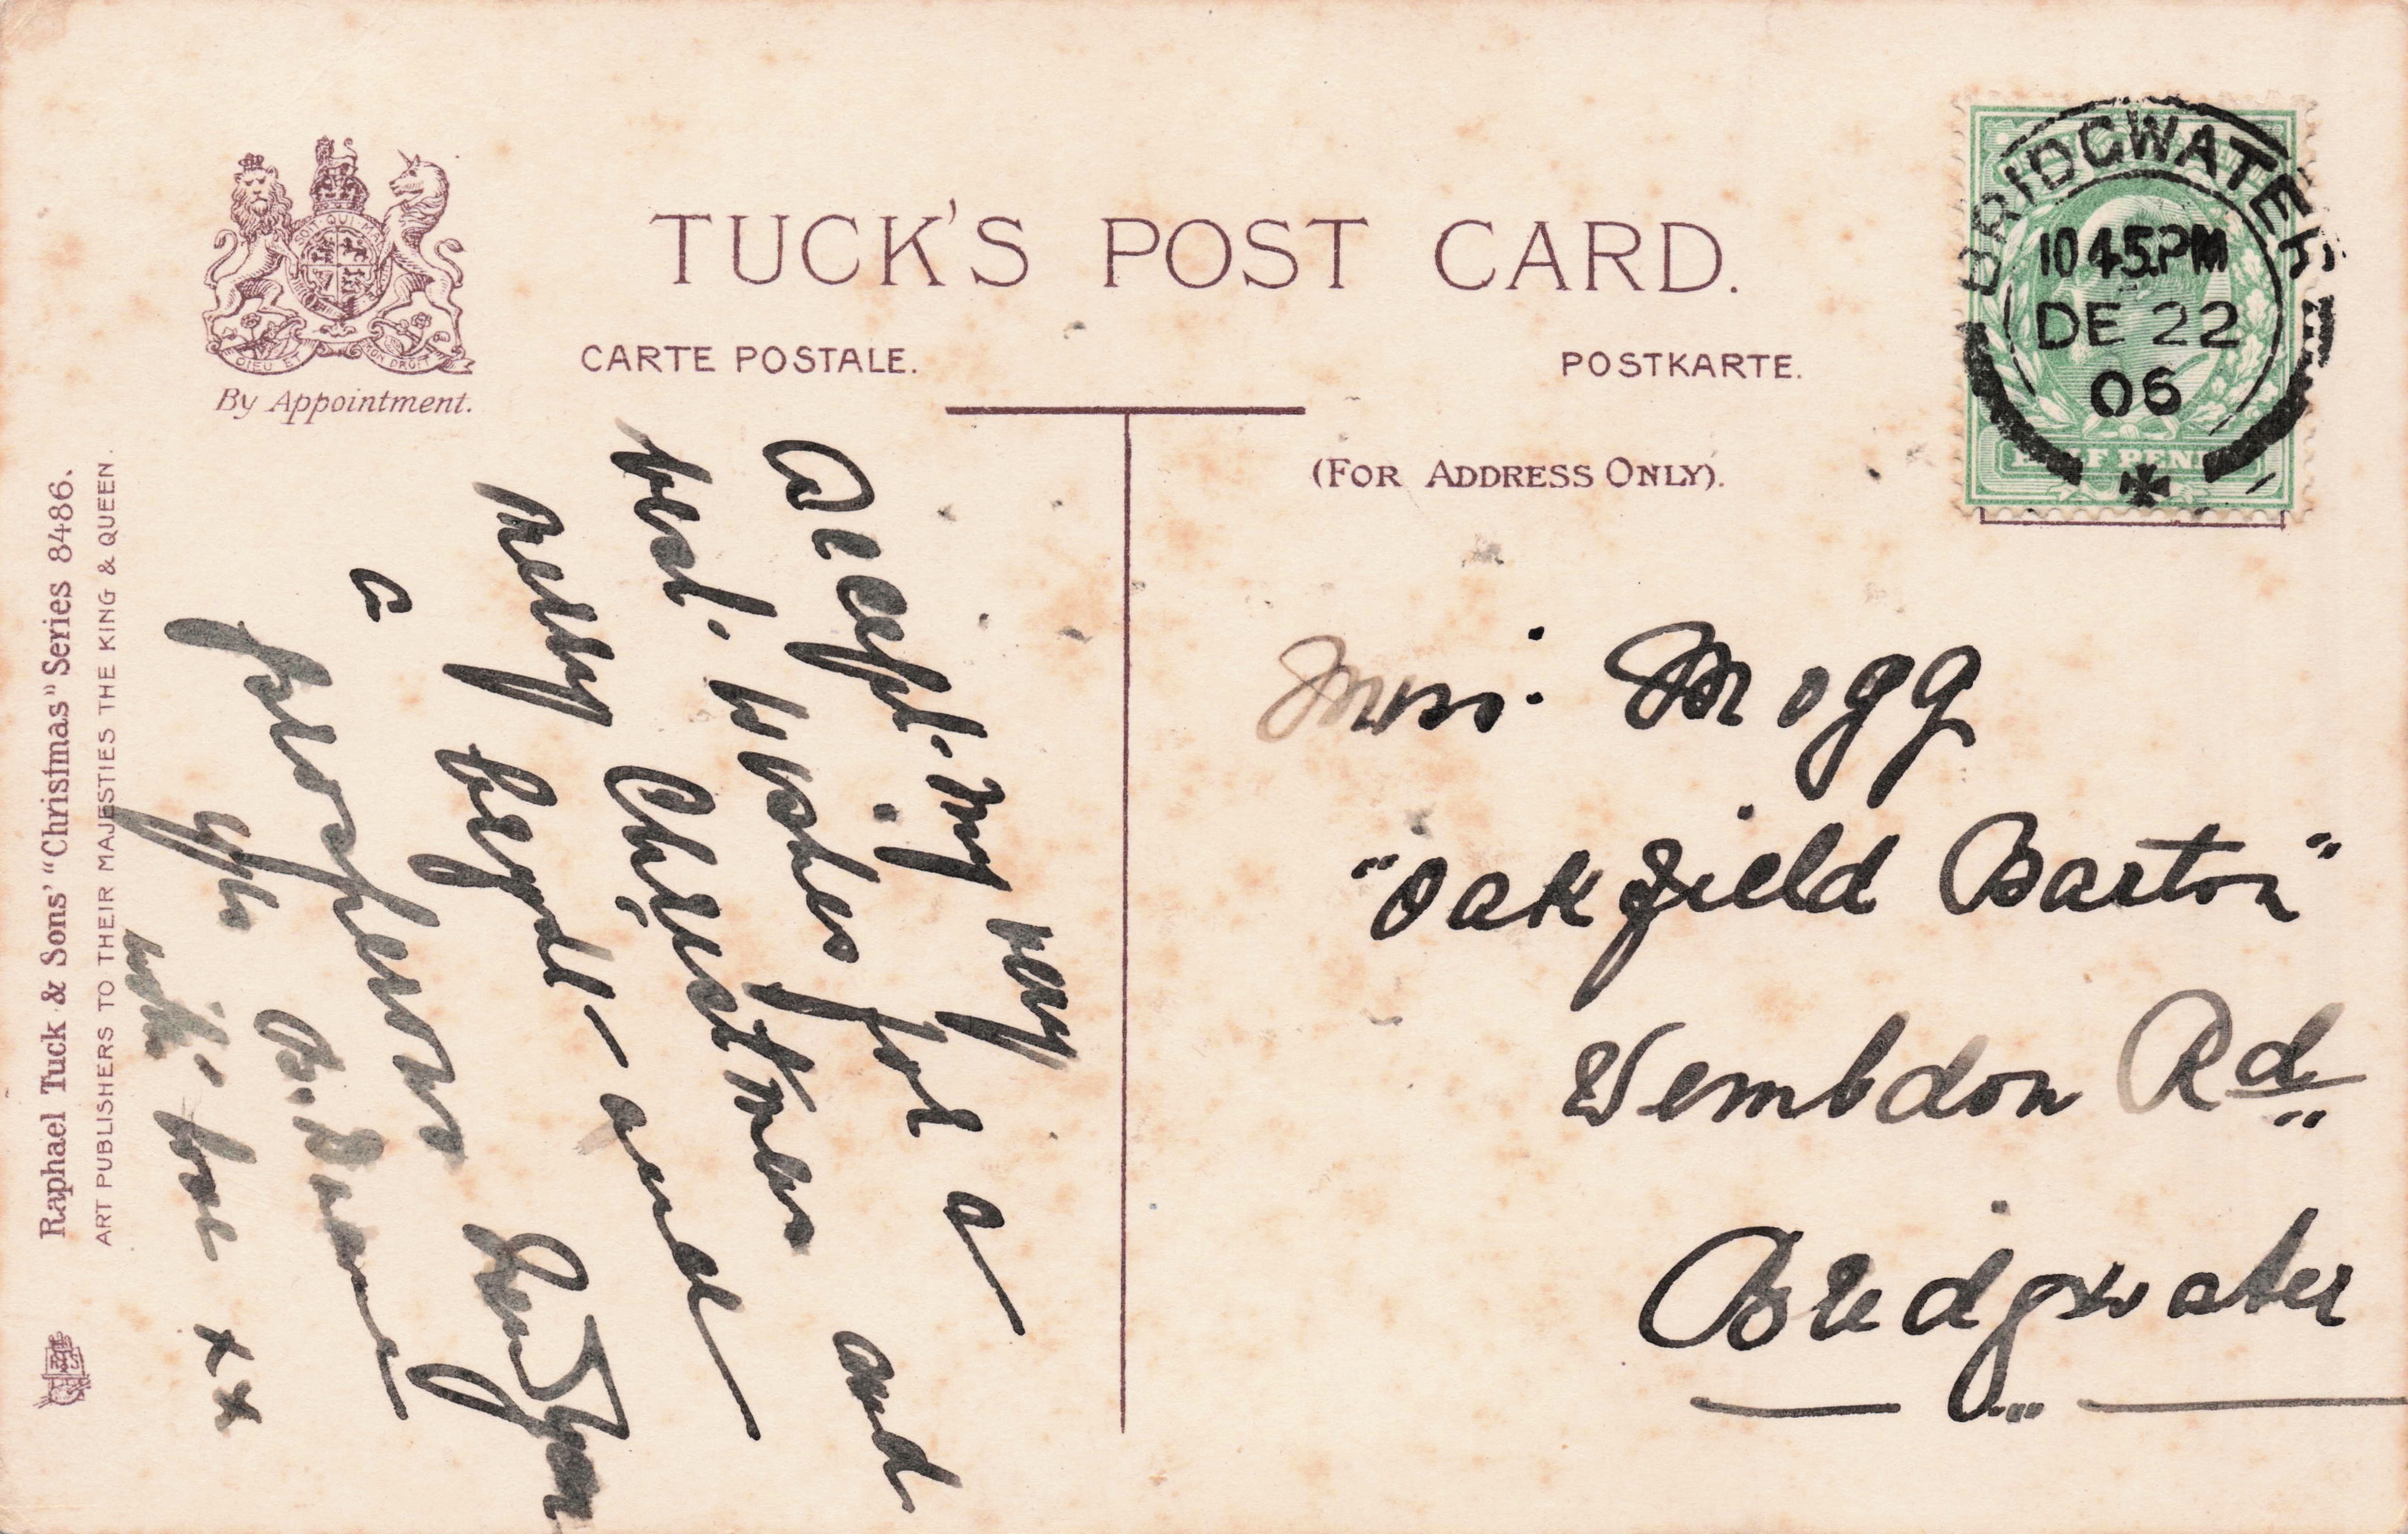 TUCK'S POST CARD.
CARTE POSTALE.
POSTKARTE.
By Appointment.
DIEU ET MON DROIT
(FOR ADDRESS ONLY).
BRIDGWATER
10 45.PM
DE 22
06
HALF PENNY
Raphael Tuck & Sons' "Christmas" Series 8486.
ART PUBLISHERS TO THEIR MAJESTIES THE KING & QUEEN.
Accept. my very
best. wishes for a
merry Christmas and
a bright - and
prosperous New Year
with love x x
Miss. Mogg
"Oakfield Barton"
Wembdon Rd
Bridgwater